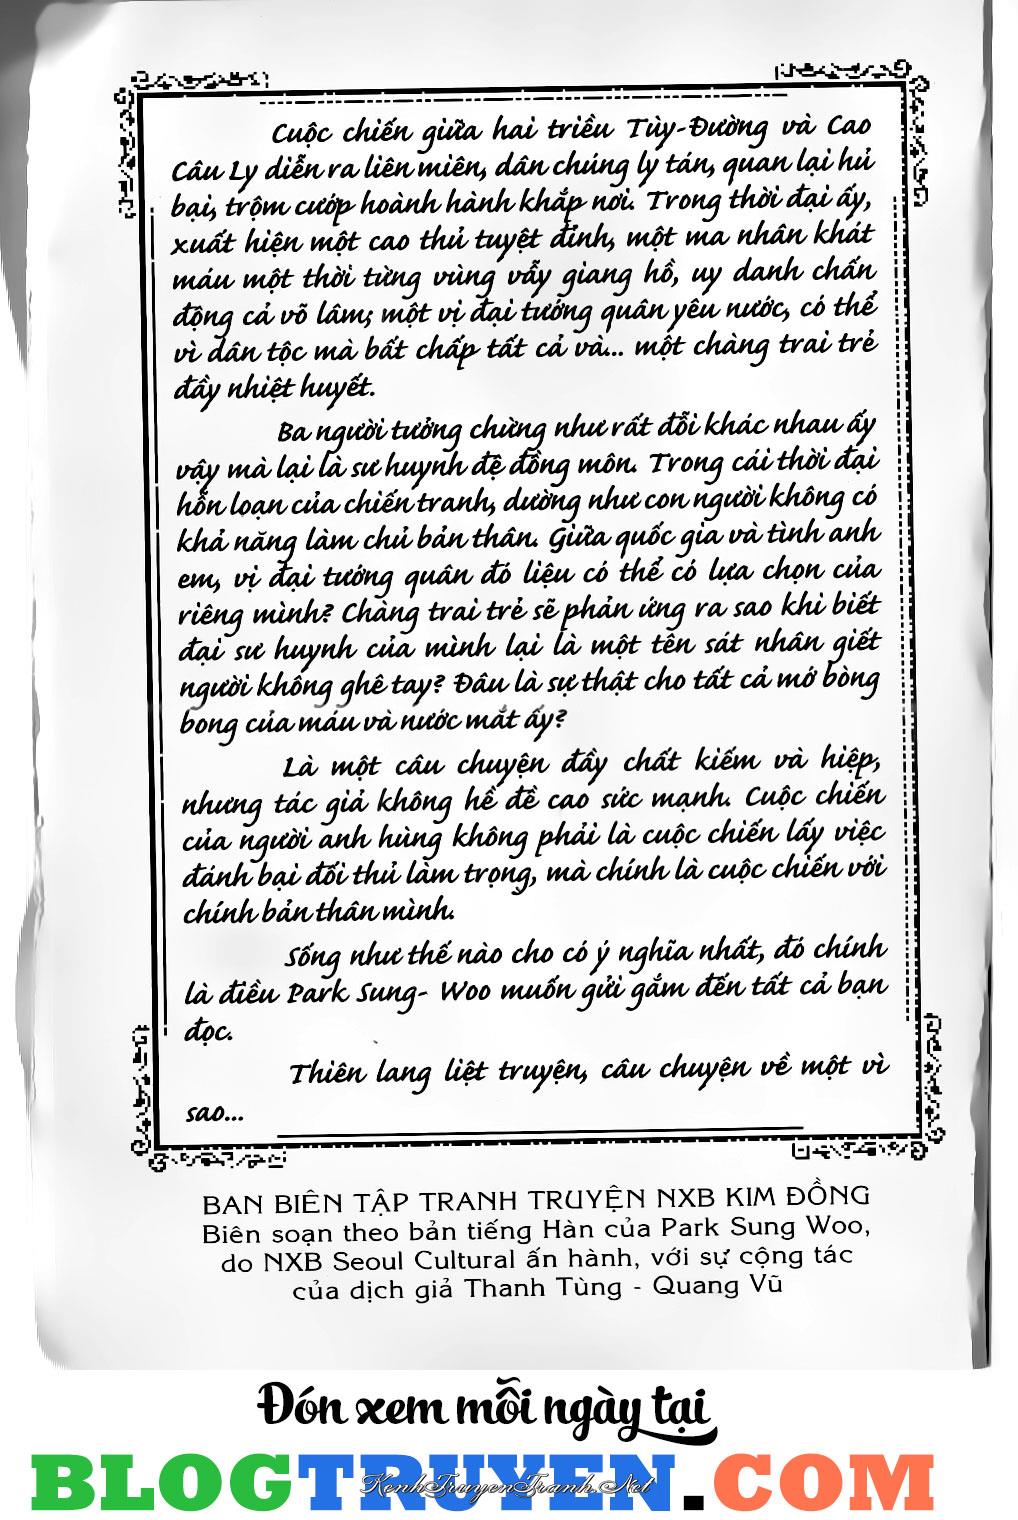 Cuộc chiến giữa hai triều Tùy-Đường và Cao
Câu Ly diễn ra liên miên, dân chúng ly tán, quan lại hủ
bại, trộm cướp hoành hành khắp nơi. Trong thời đại ấy,
xuất hiện một cao thủ tuyệt đỉnh, một ma nhân khát
máu một thời từng vùng vẫy giang hồ, uy danh chấn
động cả võ lâm; một vị đại tướng quân yêu nước, có thể
vì dân tộc mà bất chấp tất cả và... một chàng trai trẻ
đầy nhiệt huyết.
Ba người tưởng chừng như rất đỗi khác nhau ấy
vậy mà lại là sư huynh đệ đồng môn. Trong cái thời đại
hỗn loạn của chiến tranh, dường như con người không có
khả năng làm chủ bản thân. Giữa quốc gia và tình anh
em, vị đại tướng quân đó liệu có thể có lựa chọn của
riêng mình? Chàng trai trẻ sẽ phản ứng ra sao khi biết
đại sư huynh của mình lại là một tên sát nhân giết
người không ghê tay? Đâu là sự thật cho tất cả mớ bòng
bong của máu và nước mắt ấy?
Là một câu chuyện đầy chất kiếm và hiệp,
nhưng tác giả không hề đề cao sức mạnh. Cuộc chiến
của người anh hùng không phải là cuộc chiến lấy việc
đánh bại đối thủ làm trọng, mà chính là cuộc chiến với
chính bản thân mình.
Sống như thế nào cho có ý nghĩa nhất, đó chính
là điều Park Sung- Woo muốn gửi gắm đến tất cả bạn
đọc.
Thiên lang liệt truyện, câu chuyện về một vì
sao...
BAN BIÊN TẬP TRANH TRUYỆN NXB KIM ĐỒNG
Biên soạn theo bản tiếng Hàn của Park Sung Woo,
do NXB Seoul Cultural ấn hành, với sự cộng tác
của dịch giả Thanh Tùng - Quang Vũ
Đón xem mỗi ngày tại
BLOGTRUYEN.COM
KenhTruyenTranh.Net